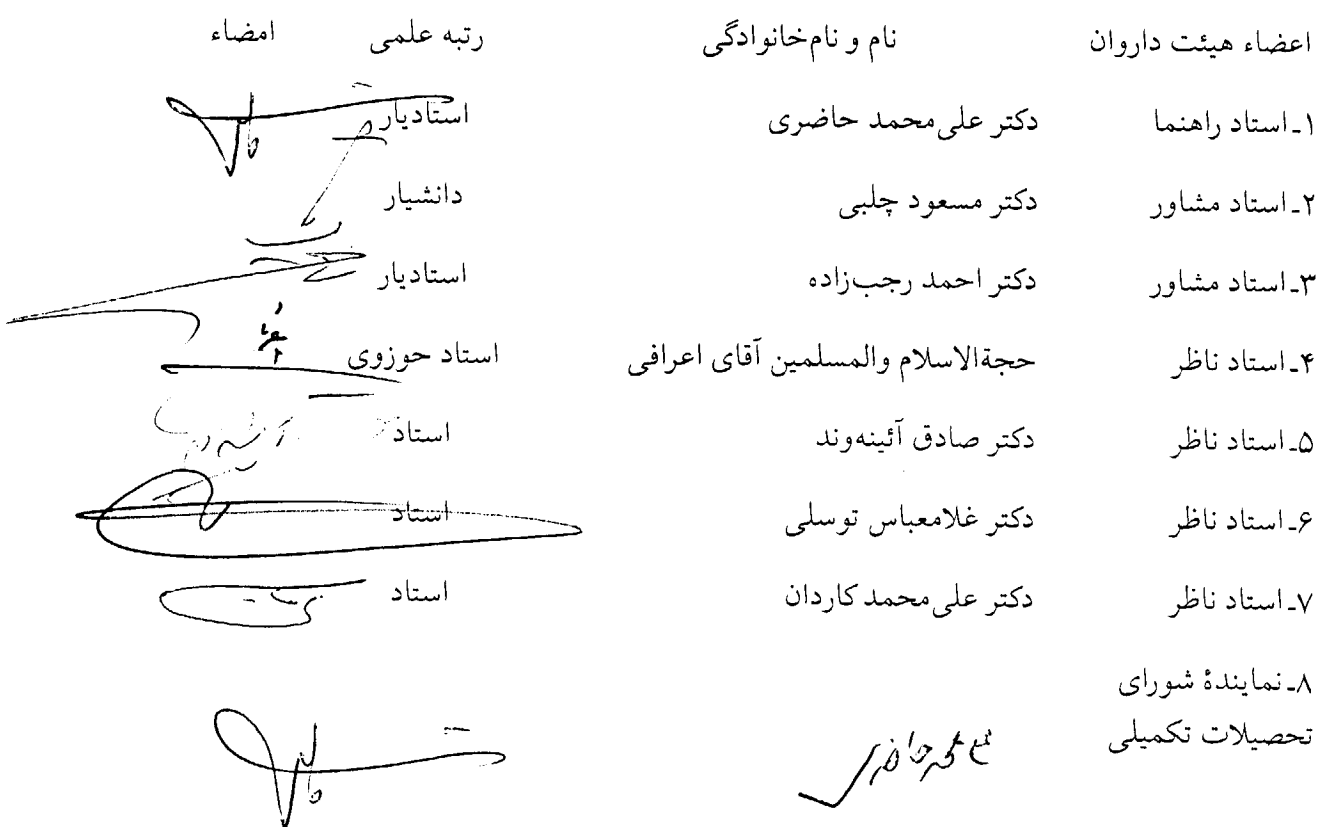 اعضاء هیئت داروان نام و نام‌خانوادگی رتبه علمی امضاء
۱ـ استاد راهنما دکتر علی‌محمد حاضری استادیار
۲ـ استاد مشاور دکتر مسعود چلبی دانشیار
۳ـ استاد مشاور دکتر احمد رجب‌زاده استادیار
۴ـ استاد ناظر حجةالاسلام والمسلمین آقای اعرافی استاد حوزوی
۵ـ استاد ناظر دکتر صادق آئینه‌وند استاد
۶ـ استاد ناظر دکتر غلامعباس توسلی استاد
۷ـ استاد ناظر دکتر علی‌محمد کاردان استاد
۸ـ نمایندهٔ شورای
تحصیلات تکمیلی